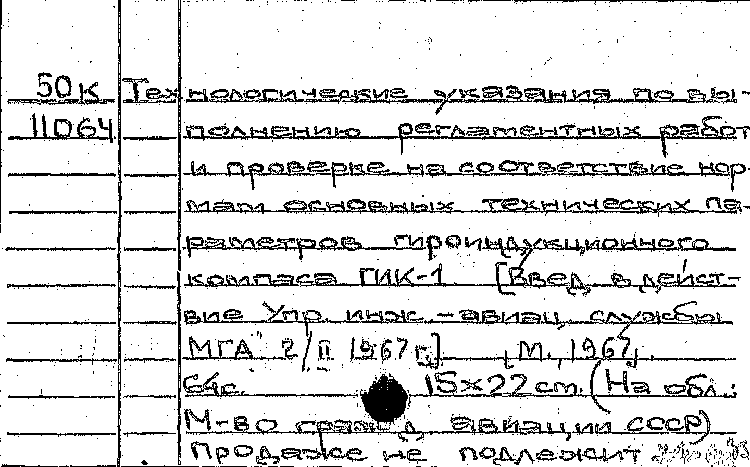 50К Технологические указания по вы-
11064 полнению регламентных работ
и проверке на соответствие нор-
мам основных технических па-
раметров гироиндукционного
компаса ГИК-1 [Введ. в дейст-
вие Упр. инж.-авиац. службы
МГА 2/II 1967 г.] , М., 1967.
64с. 15×22 см. (На обл.:
М-во гражд. авиации СССР)
Продаже не подлежит